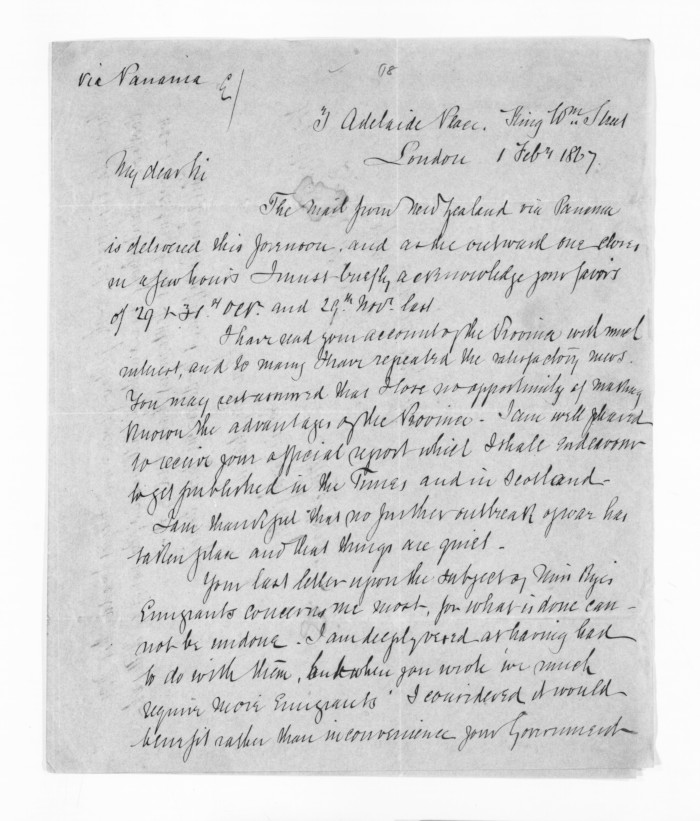 via Panama
3 Adelaide Place. King Wm Street
London 1 Feby 1867.
My dear Sir
The Mail from New Zealand via Panama
is delivered this forenoon, and as the outward one closes
in a few hours I must briefly acknowledge your favors
of 29 & 31st Octr. and 29th Novr. last
I have read your account of the Province with much
interest, and to many I have repeated the satisfactory news.
You may rest assured that I lose no opportunity of making
known the advantages of the Province - I am well pleased
to receive your official report which I shall endeavour
to get published in the Times and in Scotland -
I am thankful that no further outbreak of war has
taken place and that things are quiet -
Your last letter upon the subject of Miss Rye's
Emigrants concerns me most, for what is done can -
not be undone - I am deeply vexed at having had
to do with them, but when you wrote 'we much
require more Emigrants' I considered it would
benefit rather than inconvenience your Government